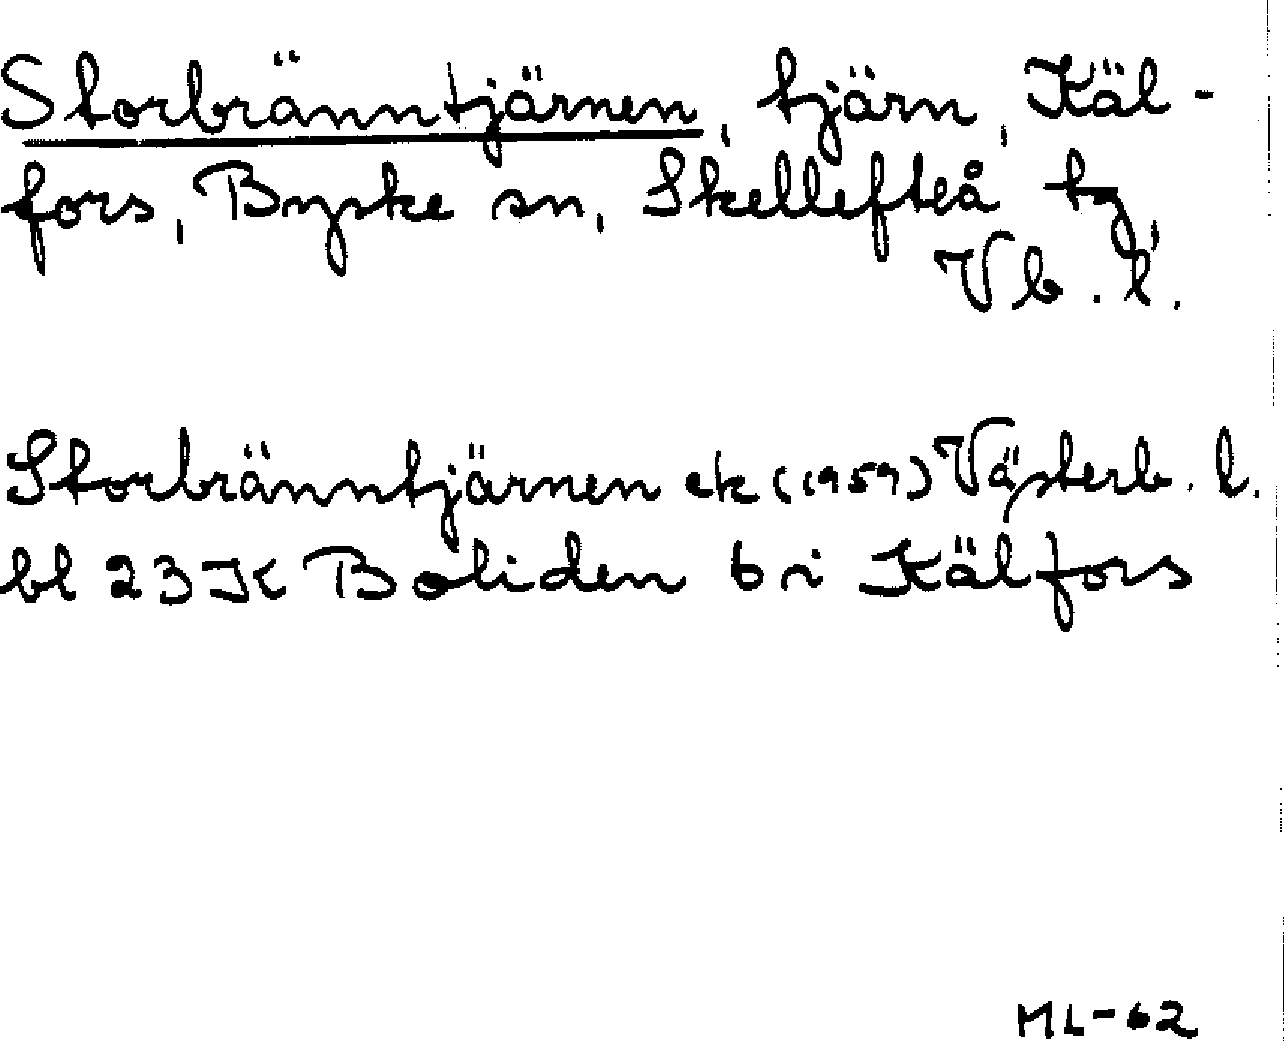 Storbränntjärnen, tjärn, Käl-
fors, Byske sn, Skellefteå tg,
Vb. l.
Storbränntjärnen ek (1959) Västerb. l.
bl 23 K Boliden 6 i Kälfors
ML-62